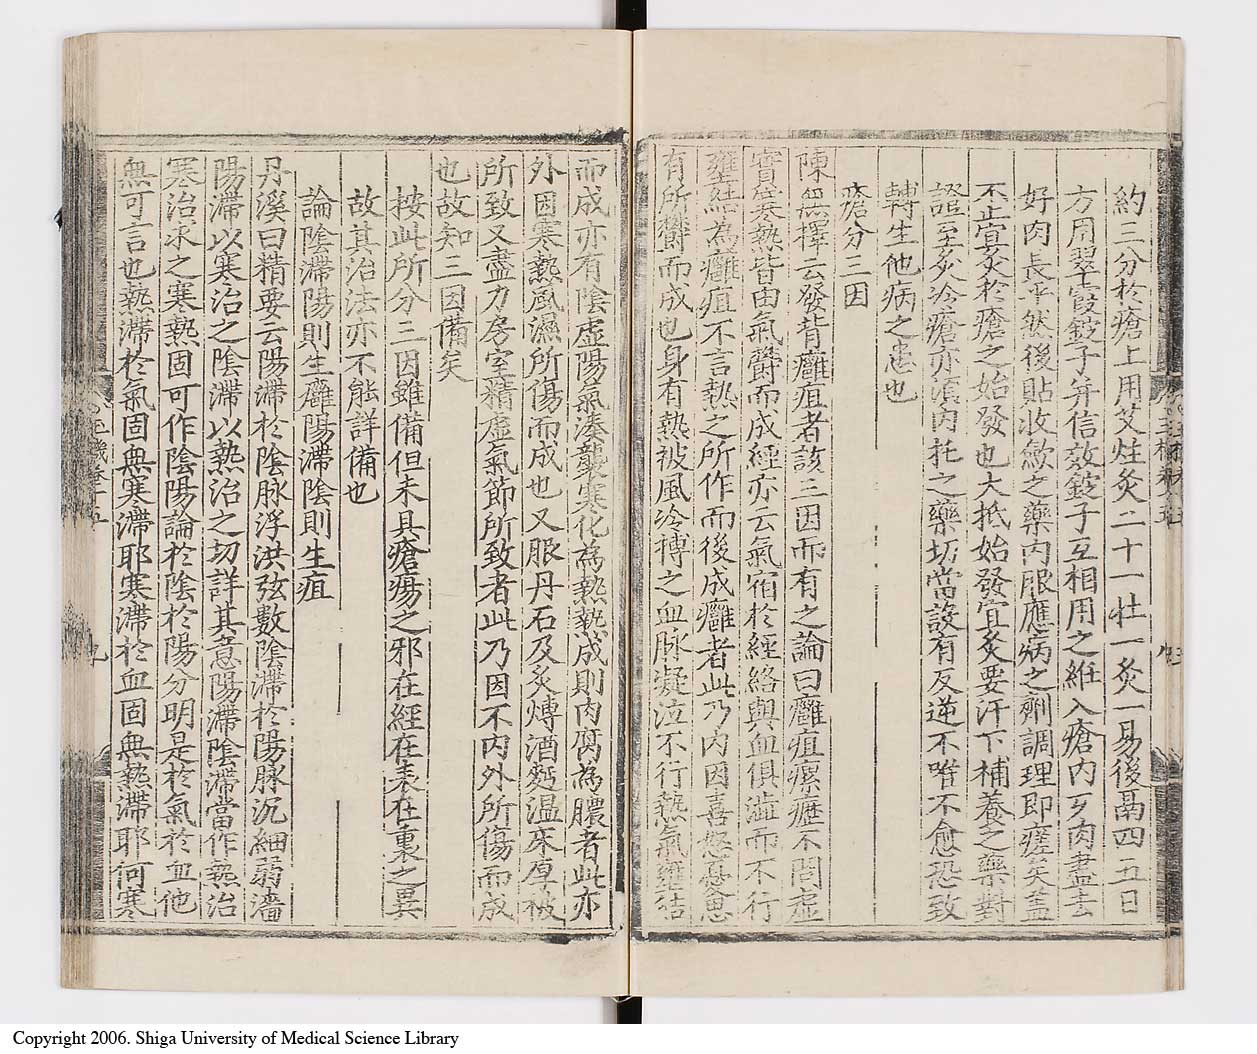 約三分於瘡上用艾炷灸二十一壮一灸一易後隔四五日
方用翠霞錠子并信效錠子互相用之絍入瘡内歹肉盡去
好肉長平然後貼收斂之藥内服應病之劑調理即瘥矣盖
不止宜灸於瘡之始發也大抵始發宜灸要汗下補養之藥對
證至灸冷瘡亦須内托之藥切當設有反逆不唯不愈恐致
轉生他病之患也
瘡分三因
陳無擇云發背癰疽者該三因而有之論曰癰疽瘰癧不問虛
實寒熱皆由氣欝而成經亦云氣宿於經絡與血俱澁而不行
壅結為癰疽不言熱之所作而後成癰者此乃内因喜怒憂思
有所欝而成也身有熱被風冷搏之血脉凝泣不行熱氣壅結
而成亦有陰虛陽氣湊襲寒化為熱熱成則肉腐為膿者此亦
外因寒熱風濕所傷而成也又服丹石及炙煿酒麪温床厚被
所致又盡力房室精虛氣節所致者此乃因不内外所傷而成
也故知三因備矣
按此所分三因雖備但未具瘡瘍之邪在經在表在裏之異
故其治法亦不能詳備也
論陰滯陽則生癰陽滯陰則生疽
丹溪曰精要云陽滯於陰脉浮洪弦數陰滯於陽脉沉細弱濇
陽滯以寒治之陰滯以熱治之切詳其意陽滯陰滯當作熱治
寒治求之寒熱固可作陰陽論於陰於陽分明是於氣於血他
無可言也熱滯於氣固無寒滯耶寒滯於血固無熱滯耶何寒
九
Copyright 2006. Shiga University of Medical Science Library